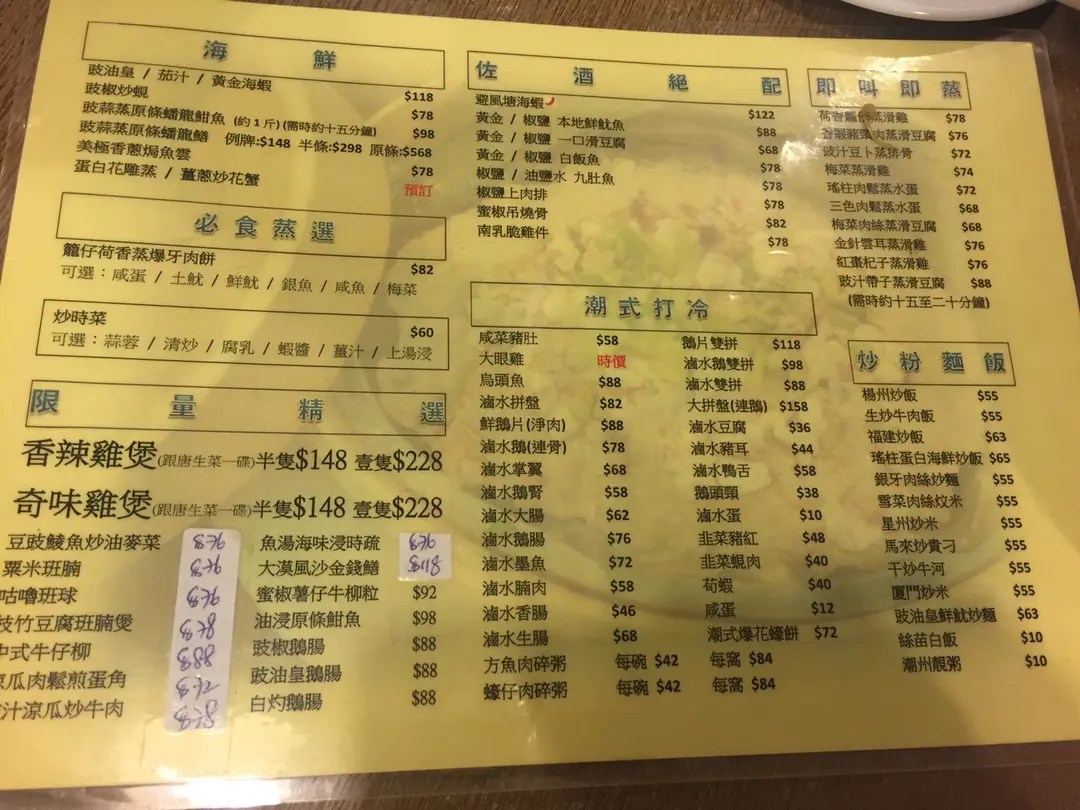 海鮮
豉油皇 / 茄汁 / 黃金海蝦 $118
豉椒炒蜆 $78
豉蒜蒸原條蟠龍鉗魚 (約1斤)(需時約十五分鐘) $98
豉蒜蒸原條蟠龍鱔 例牌:$148 半條:$298 原條:$568
美極香蔥焗魚雲 $78
蛋白花雕蒸 / 薑蔥炒花蟹 預訂
必食蒸選
籠仔荷香蒸爆牙肉餅 $82
可選：咸蛋 / 土魷 / 鮮魷 / 銀魚 / 咸魚 / 梅菜
炒時菜 $60
可選：蒜蓉 / 清炒 / 腐乳 / 蝦醬 / 薑汁 / 上湯浸
限量精選
香辣雞煲(跟唐生菜一碟)半隻$148 壹隻$228
奇味雞煲(跟唐生菜一碟)半隻$148 壹隻$228
豆豉鯪魚炒油麥菜
粟米班腩
咕嚕班球
枝竹豆腐班腩煲
中式牛仔柳
涼瓜肉鬆煎蛋角
汁涼瓜炒牛肉
魚湯海味浸時疏
大漠風沙金錢鱔
蜜椒薯仔牛柳粒 $92
油浸原條鉗魚 $98
豉椒鵝腸 $88
豉油皇鵝腸 $88
白灼鵝腸 $88
佐酒絕配
避風塘海蝦 $122
黃金 / 椒鹽 本地鮮魷魚 $88
黃金 / 椒鹽 一口滑豆腐 $68
黃金 / 椒鹽 白飯魚 $78
椒鹽 / 油鹽水 九肚魚 $78
椒鹽上肉排 $78
蜜椒吊燒骨 $82
南乳脆雞件 $78
潮式打冷
咸菜豬肚 $58
大眼雞 時價
烏頭魚 $88
滷水拼盤 $82
鮮鵝片(淨肉) $88
滷水鵝(連骨) $78
滷水掌翼 $68
滷水鵝腎 $58
滷水大腸 $62
滷水鵝腸 $76
滷水墨魚 $72
滷水腩肉 $58
滷水香腸 $46
滷水生腸 $68
方魚肉碎粥 每碗 $42 每窩 $84
蠔仔肉碎粥 每碗 $42 每窩 $84
鵝片雙拼 $118
滷水鵝雙拼 $98
滷水雙拼 $88
大拼盤(連鵝) $158
滷水豆腐 $36
滷水豬耳 $44
滷水鴨舌 $58
鵝頭頸 $38
滷水蛋 $10
韭菜豬紅 $48
韭菜蜆肉 $40
荀蝦 $40
咸蛋 $12
潮式爆花蠔餅 $72
即叫即蒸
荷香龍 蒸滑雞 $78
香蝦豬頸肉蒸滑豆腐 $76
豉汁豆卜蒸排骨 $72
梅菜蒸滑雞 $74
瑤柱肉鬆蒸水蛋 $72
三色肉鬆蒸水蛋 $68
梅菜肉絲蒸滑豆腐 $68
金針雲耳蒸滑雞 $76
紅棗杞子蒸滑雞 $76
豉汁帶子蒸滑豆腐 $88
(需時約十五至二十分鐘)
炒粉麵飯
楊州炒飯 $55
生炒牛肉飯 $55
福建炒飯 $63
瑤柱蛋白海鮮炒飯 $65
銀牙肉絲炒麵 $55
雪菜肉絲炆米 $55
星州炒米 $55
馬來炒貴刁 $55
干炒牛河 $55
廈門炒米 $55
豉油皇鮮魷炒麵 $63
絲苗白飯 $10
潮州靚粥 $10